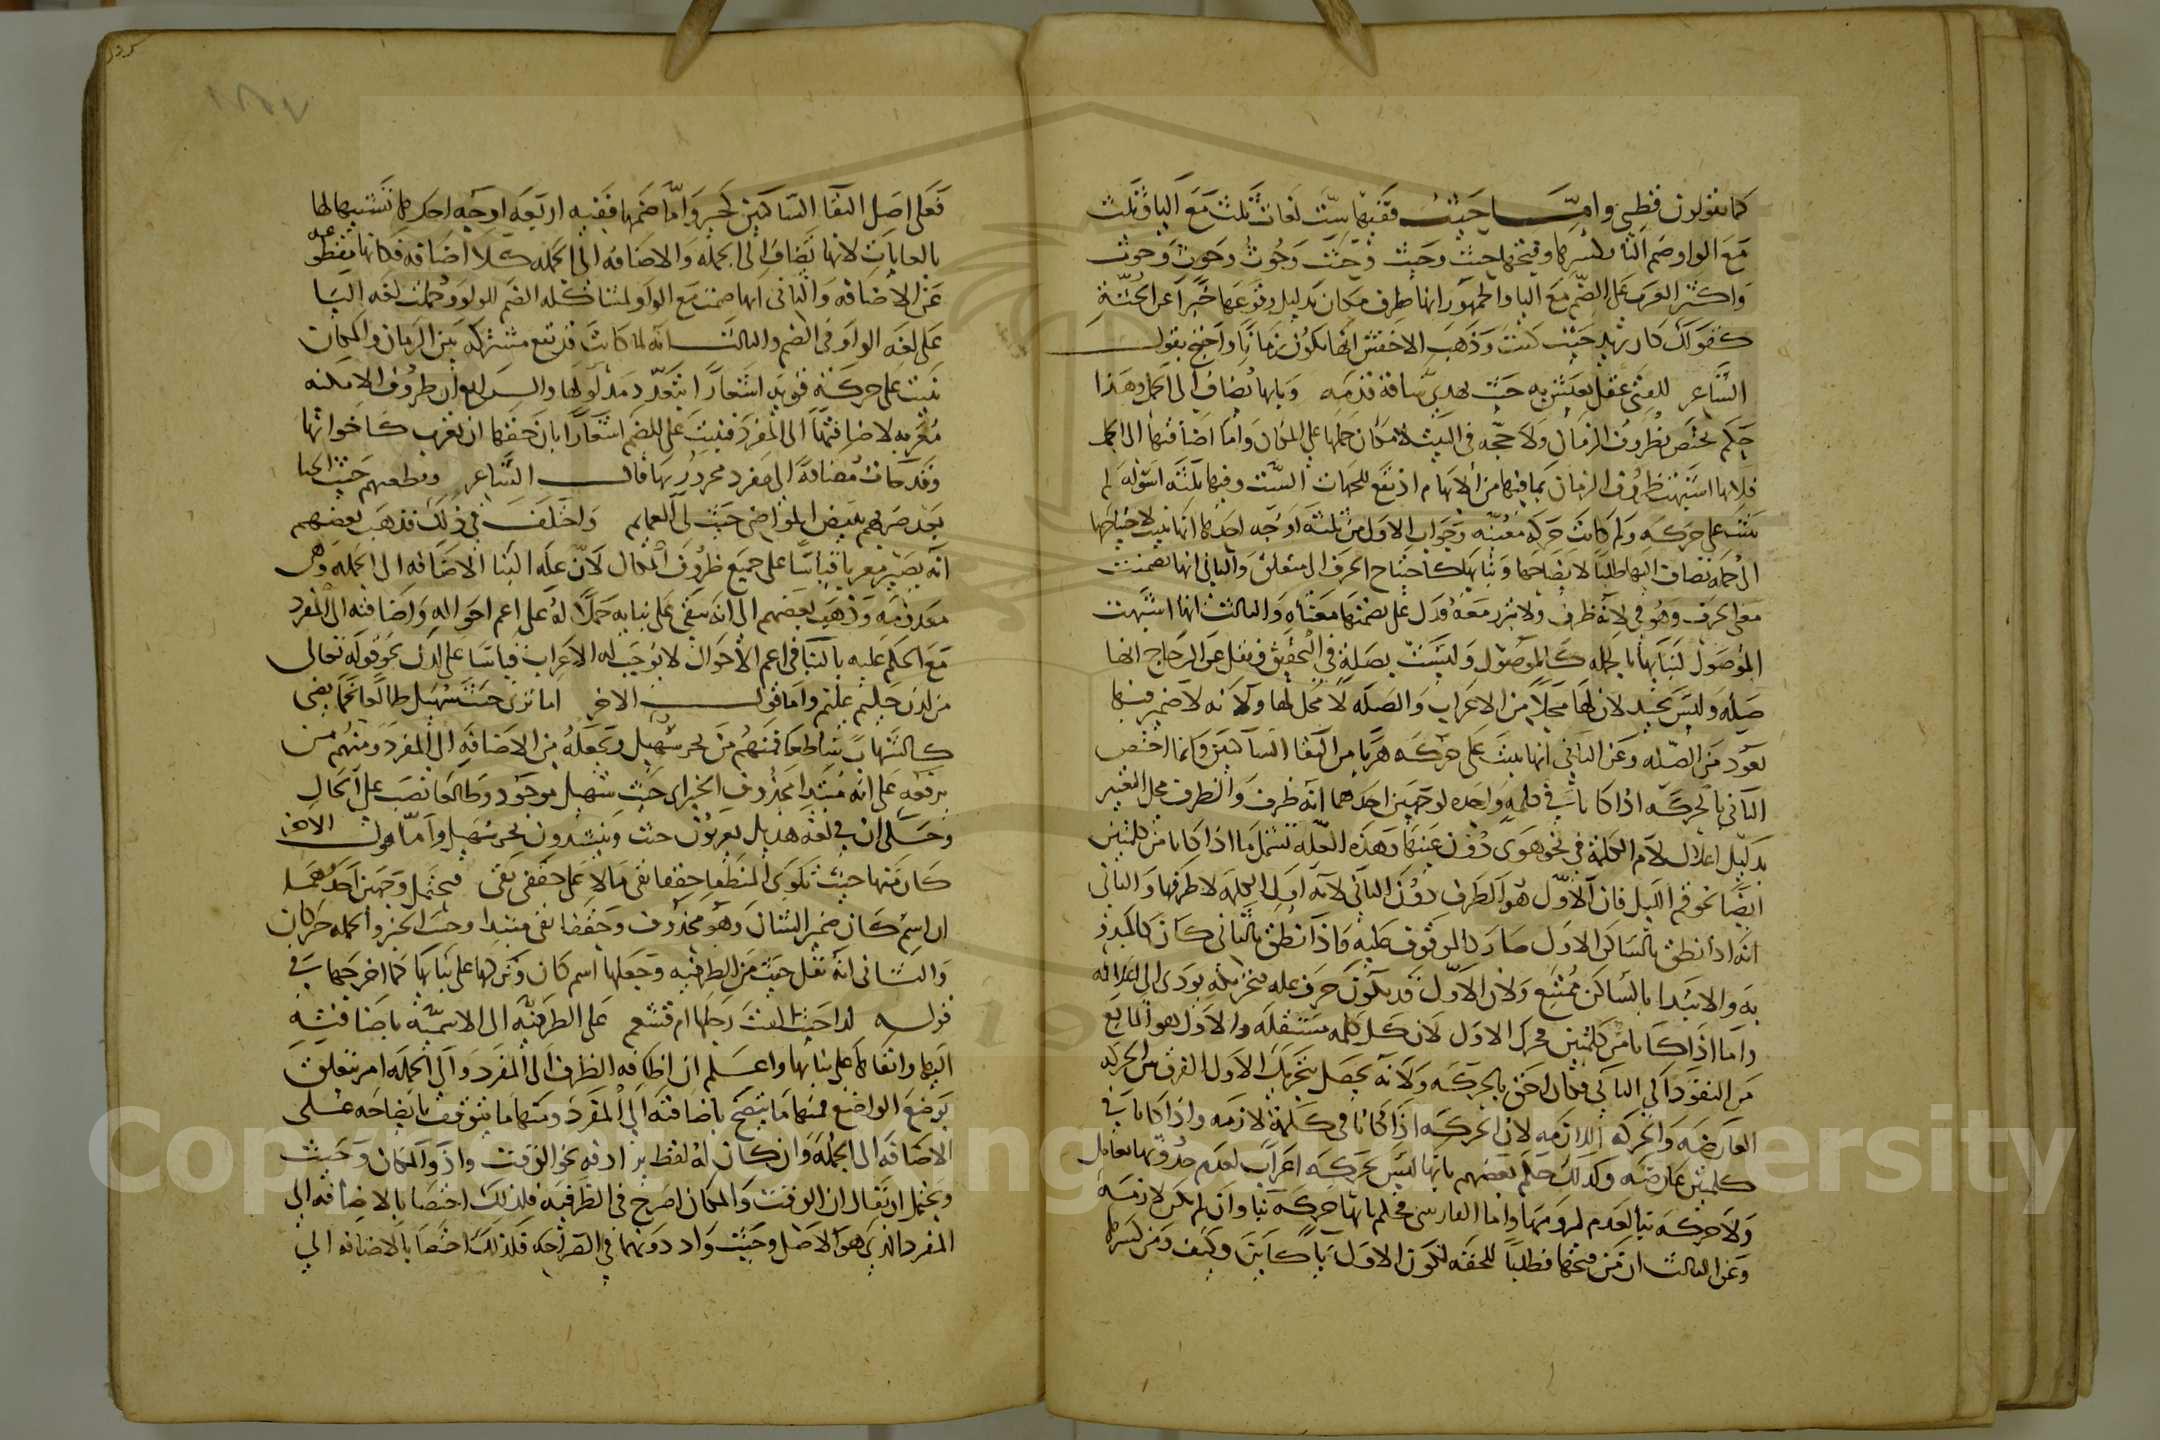 كما يقولون قطني وامّا حيث ففيها ستّ لغات ثلث مع اليا وثلث
مع الواو ضم الثا وكسرها وفتحها حيث وحيث وحيث وحوث وحوث وحوث
واكثر العرب على الضم مع اليا والجمهور انها ظرف مكان بدليل وقوعها خبرا عن الجثة
كقولك كان زيد حيث كنت وذهب الاخفش انها تكون زمانا واحتج بقول
الشاعر للفتى عقل يعيش به حيث تهدي ساقه قدمه وبابها تضاف الى الجمل وهذا
حكم يختص بظروف الزمان ولا حجه في البيت لامكان حملها على المكان واما اضافتها الى الجمل
فلانها اشبهت ظروف الزمان بما فيها من الابهام اذ تقع للجهات الست وفيها ثلثة اسوله لم
بنيت على حركه ولم كانت حركه معينه وجواب الاول من ثلثة اوجه احدها انها بنيت لاحتياجها
الى جملة تضاف اليها طلبا لايضاحها وبيانها كاحتياج الحرف الى متعلق والثاني انها تضمنت
معنى الحرف وهو في لانه ظرف ولا تبرز معه فدل على تضمنها معناه والثالث انها اشبهت
الموصول لبيانها بالجمله كالموصول وليست بصلة في التحقيق ونقل عن الزجاج انها
صله وليس بجيد لان لها محلا من الاعراب والصله لا محل لها ولانه لا ضمير فيها
يعود من الصله وعن الثاني انها بنيت على حركه هربا من التقا الساكنين وانما اختص
الثاني بالحركه اذا كانا في كلمة واحده لوجهين احدهما انه ظرف والظرف محل التغيير
بدليل اعلال لام الكلمة في نحو هوى دون عينها وهذه العله تشمل ما اذا كانا من كلمتين
ايضا نحو قم الليل فان الاول هو الطرف دون الثاني لانه اول الكلمه لا طرفها والثاني
انه اذا نطق بالساكن الاول صار كالموقوف عليه واذا نطق بالثاني كان كالمبدؤ
به والابتدا بالساكن ممتنع ولان الاول قد يكون حرف عله فتحريكه يودي الى اعلاله
واما اذا كانا من كلمتين فحرك الاول لان كل كلمه مستقله والاول هو المانع
من النفوذ الى الثاني فكان احق بالحركه ولانه يحصل بتحريك الاول الفرق بين الحركه
العارضه والحركه اللازمه لان الحركه اذا كانا في كلمة لازمه واذا كانا في
كلمتين عارضه وكذلك حكم بعضهم بانها ليس بحركه اعراب لعدم حدوثها بعامل
ولا حركه بنا لعدم لزومها واما الفارسي فحكم بانها حركه بنا وان لم تكن لازمه
وعن الثالث ان من فتحها فطلبا للخفه لكون الاول يا كاين وكيف ومن كسرها
فعلى اصل التقا الساكنين كجير وامّا ضمها ففيه اربعه اوجه احدها تشبيها لها
بالغايات لانها تضاف الى الجمله والاضافه الى الجمله كلا اضافه فكانها مقطوعه
عن الاضافه والثاني انها ضمت مع الواو لمشاكله الضم للواو وحملت لغه اليا
على لغه الواو في الضم والثالث انه لما كانت قد تقع مشتركه بين الزمان والمكان
بنيت على حركه قويه اشعارا بتعدد مدلولها والرابع ان ظروف الامكنه
معربه لاضافتها الى المفرد فبنيت على الضم اشعارا بان حقها ان تعرب كاخواتها
وقد جات مضافة الى مفرد مجرور بها قال الشاعر ونطعنهم حيث الحبا
بعد ضربهم ببيض المواضي حيث لي العمايم واختلف في ذلك فذهب بعضهم
انه يصير معربا قياسا على جميع ظروف المكان لان عله البنا الاضافه الى الجمله وهى
معدومه وذهب بعضهم الى انه يبقى على بنايه حملا له على اعم احواله واضافته الى المفرد
مع الحكم عليه بالبنا في اعم الاحوال لا يوجب له الاعراب قياسا على لدن نحو قوله تعالى
من لدن حكيم عليم واما قول الاخر اما ترى حيث سهيل طالعا نجما يضى
كالشهاب ساطعا فمنهم من يجر سهيل ويجعله من الاضافه الى المفرد ومنهم من
يرفعه على انه مبتدا محذوف الخبر اى حيث سهيل موجود وطالعا نصب على الحال
وحكى ان في لغه هذيل يعربون حيث وينشدون بجر سهيل وامّا قول الاخر
ان اسم كان ضمير الشان وهو محذوف وحففا نقى مبتدا وحيث الخبر والجمله خبر كان
والثاني انه نقل حيث من الظرفيه وجعلها اسم كان وتركها على بنايها كما اخرجها في
قوله لدا حيث القت رحلها ام قشعم على الظرفيه الى الاسميّه باضافته
اليها وابقاها على بنايها واعلم ان اضافه الظرف الى المفرد والى الجمله امر متعلق
بوضع الواضع فمنها ما يتضح باضافته الى المفرد ومنها ما يتوقف ايضاحه على
الاضافه الى الجمله وان كان له لفظ يرادفه نحو الوقت واذ والمكان وحيث
ويحتمل ان يقال ان الوقت والمكان اصرح في الظرفيه فلذلك اختصا بالاضافه الى
المفرد الذي هو الاصل وحيث واذ دونهما في الصراحه فلذلك اختصا بالاضافه الى